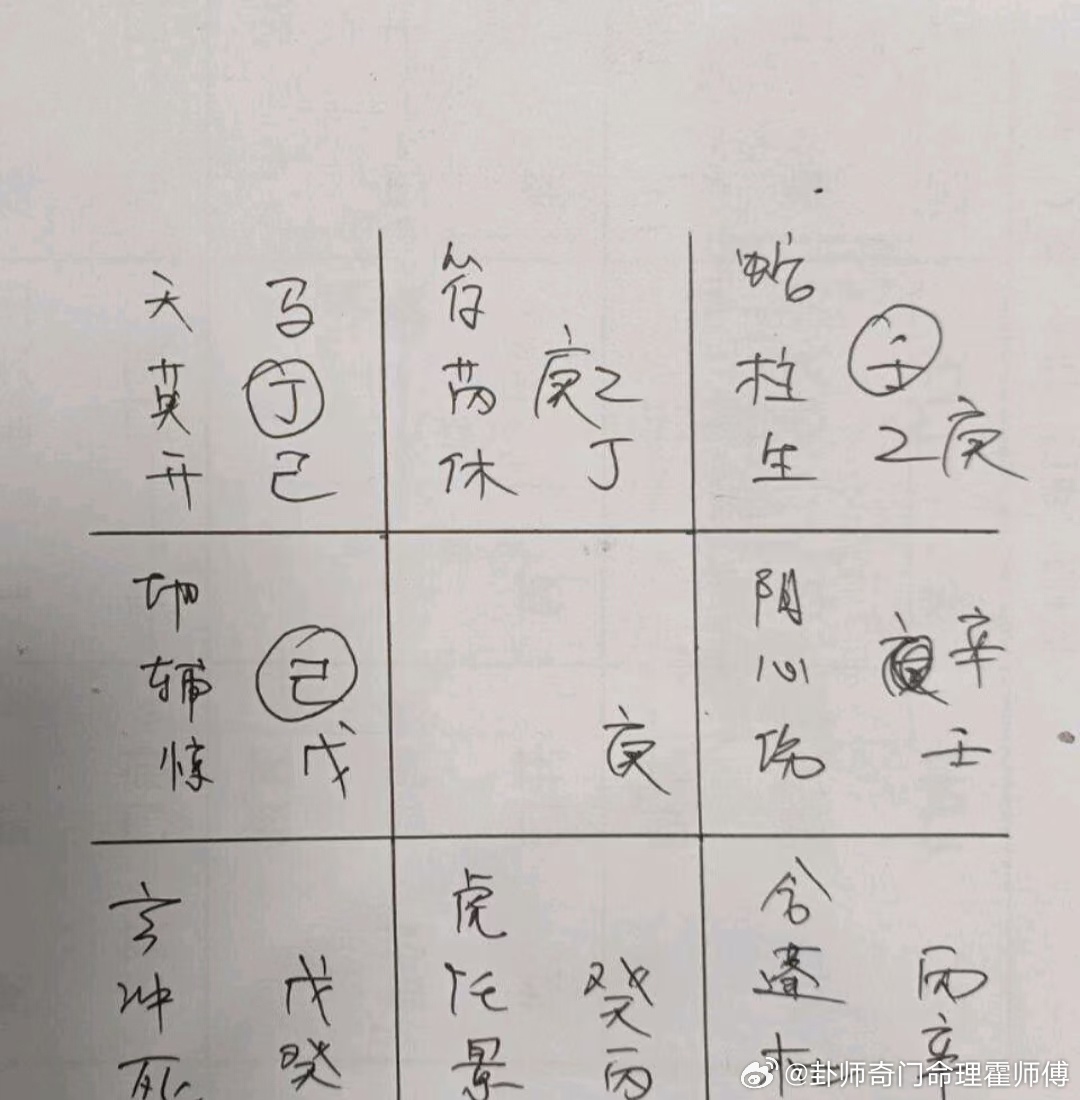 天 马
英 丁
开 己
符
芮 庚乙
休 丁
蛇
柱 壬
生 乙庚
地
辅 己
惊 戊
庚
阴
心 辛
伤 壬
玄
冲 戊
死 癸
虎
任 癸
景 丙
合
蓬 丙
杜 辛
@卦师奇门命理霍师傅